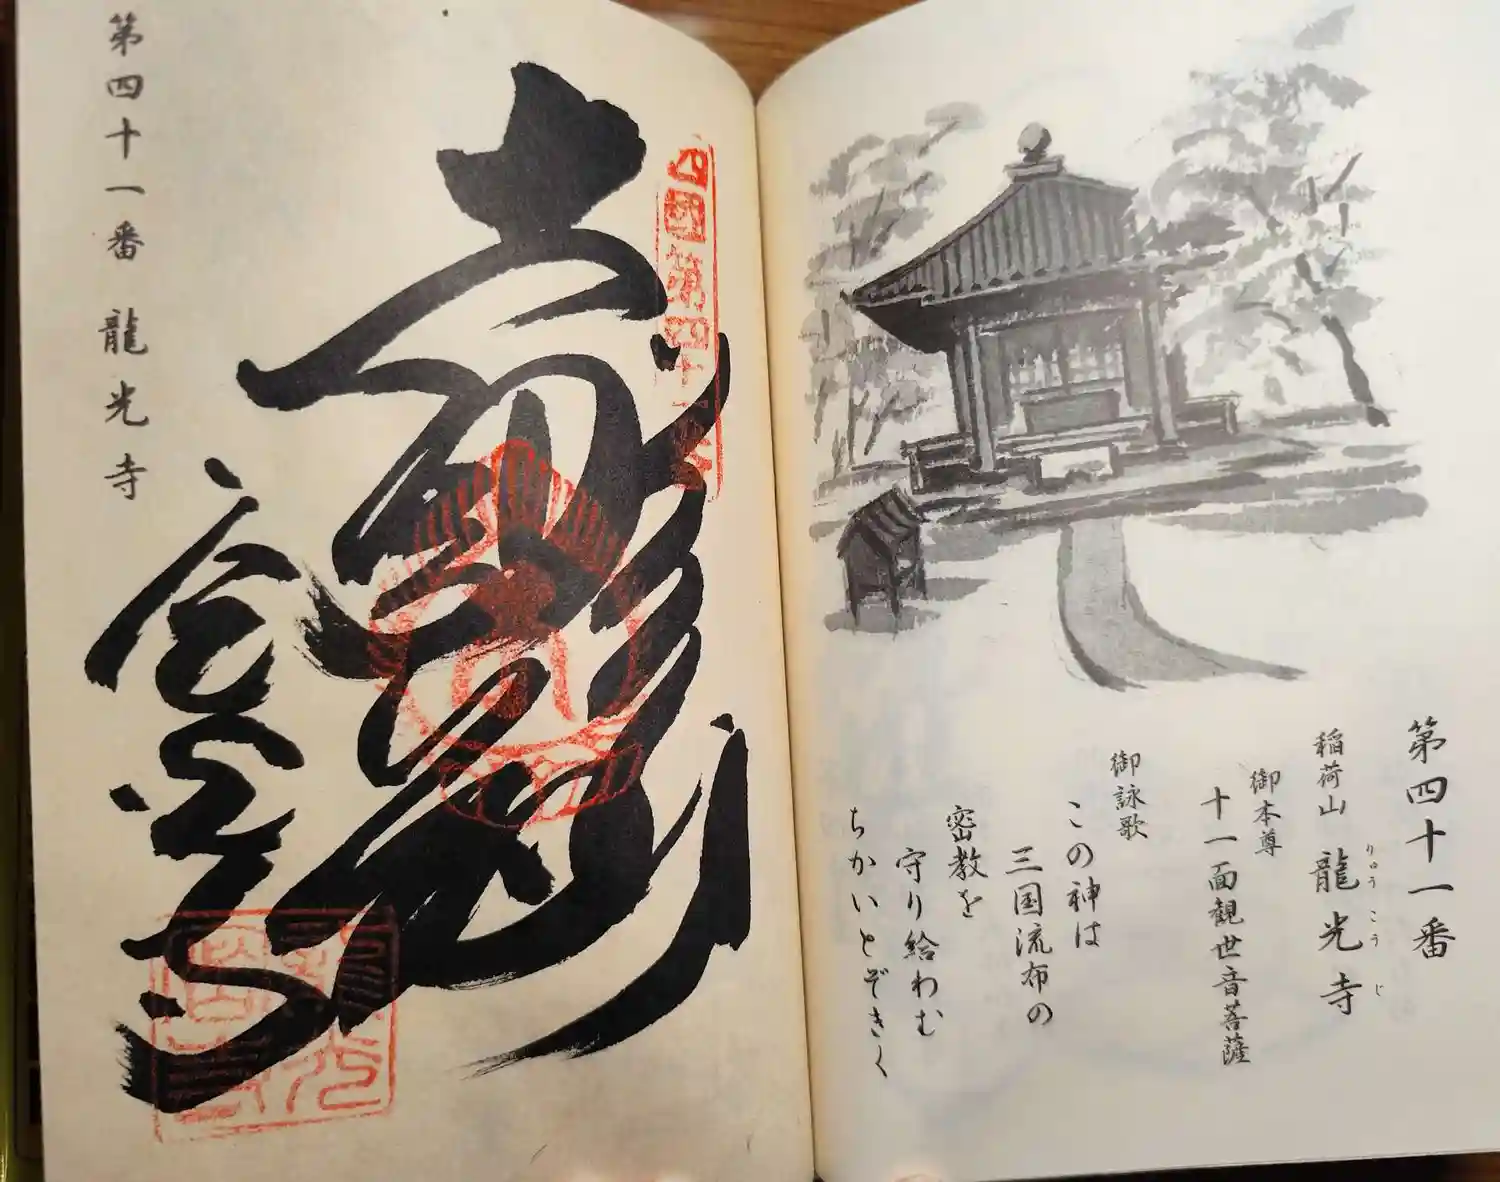 第四十一番
稲荷山 龍光寺
りゅうこうじ
御本尊
十一面観世音菩薩
御詠歌
この神は
三国流布の
密教を
守り給わむ
ちかいとぞきく
四國第四十一
龍光寺
第四十一番 龍光寺